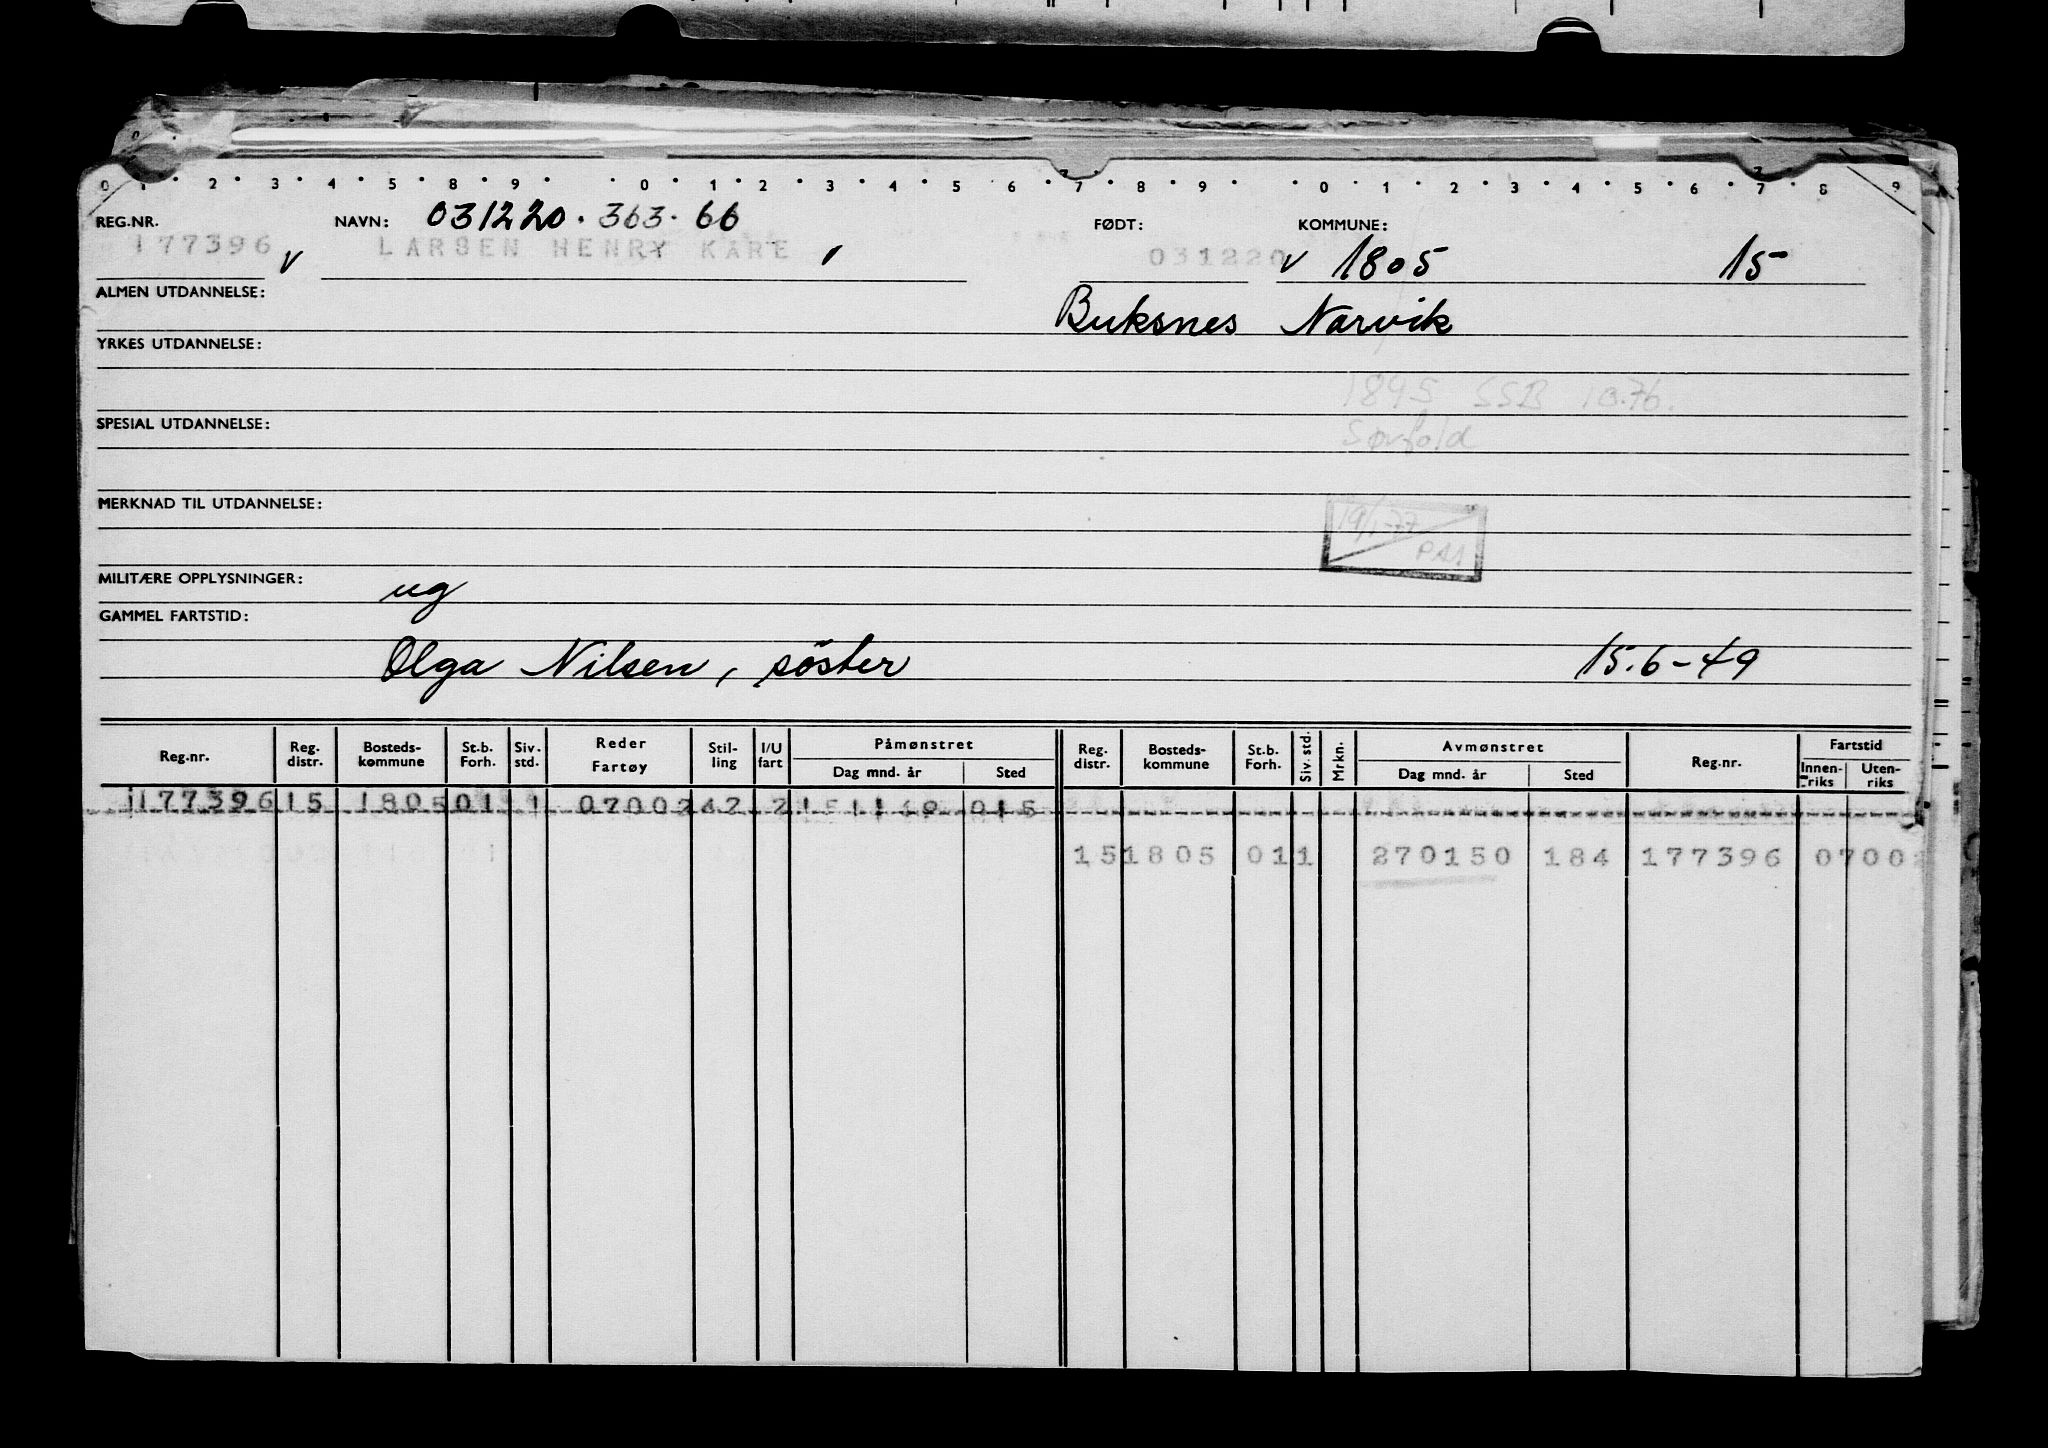 0 1 2 3 4 5 8 9 0 1 2 3 4 5 6 7 8 9 0 1 2 3 4 5 6 7 8 9
REG.NR. NAVN: 031220. 363. 66 FØDT: KOMMUNE:
177396 v LARSEN HENRY KÅRE 031220 v 1805 15
ALMEN UTDANNELSE: Buksnes Narvik
YRKES UTDANNELSE:
1895 SSB 10.76.
SPESIAL UTDANNELSE: Sørfold
MERKNAD TIL UTDANNELSE:
19/1-77
PA1
MILITÆRE OPPLYSNINGER: ug
GAMMEL FARTSTID:
Olga Nilsen, söster 15.6-49
Reg.nr. Reg. distr. Bosteds-kommune St.b. Forh. Siv. std. Reder Fartøy Stil-ling I/U fart Påmønstret Dag mnd. år Sted Reg. distr. Bosteds-kommune St.b. Forh. Siv. std. Mrkn. Avmønstret Dag mnd. år Sted Reg.nr. Fartstid Innen-riks Uten-riks
177396 15 1805 01 1 07002 42 2 015
15 1805 01 1 270150 184 177396 07002